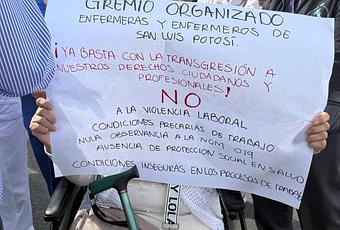 GREMIO ORGANIZADO
ENFERMERAS Y ENFERMEROS DE
SAN LUIS POTOSÍ.
¡YA BASTA CON LA TRANSGRESIÓN A
NUESTROS DERECHOS CIUDADANOS Y
PROFESIONALES!
NO
A LA VIOLENCIA LABORAL
CONDICIONES PRECARIAS DE TRABAJO
NULA OBSERVANCIA A LA NOM 019
AUSENCIA DE PROTECCIÓN SOCIAL EN SALUD
CONDICIONES INSEGURAS EN LOS PROCESOS DE TRABAJO
Y LOL